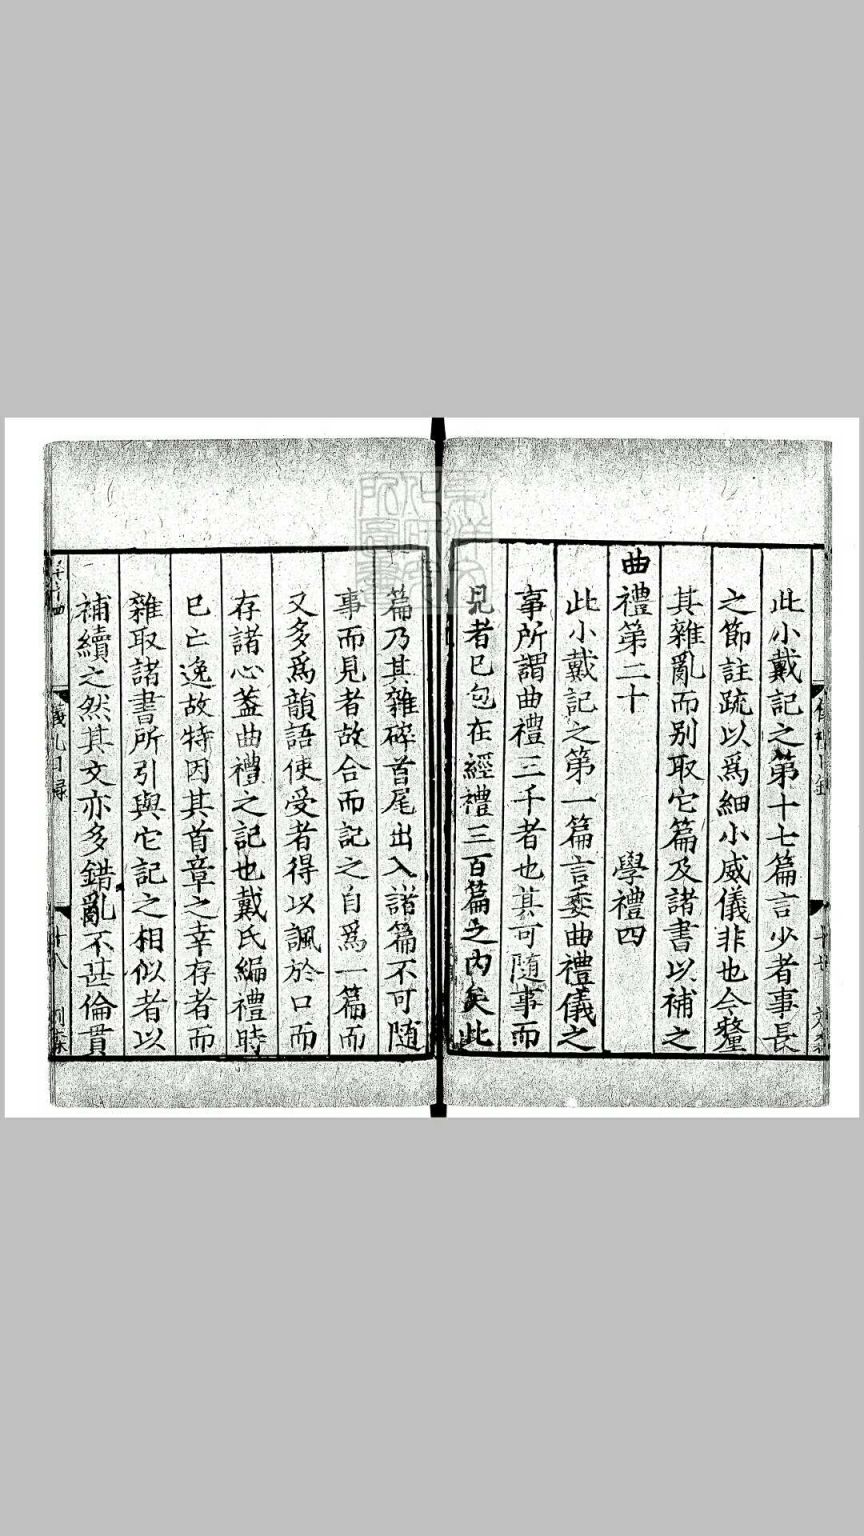 此小戴記之第十七篇言少者事長
之節註疏以爲細小威儀非也今釐
其雜亂而別取它篇及諸書以補之
曲禮第二十 學禮四
此小戴記之第一篇言委曲禮儀之
事所謂曲禮三千者也其可隨事而
見者已包在經禮三百篇之內矣此
篇乃其雜碎首尾出入諸篇不可隨
事而見者故合而記之自爲一篇而
又多爲韻語使受者得以諷於口而
存諸心葢曲禮之記也戴氏編禮時
已亡逸故特因其首章之幸存者而
雜取諸書所引與它記之相似者以
補續之然其文亦多錯亂不甚倫貫
十八